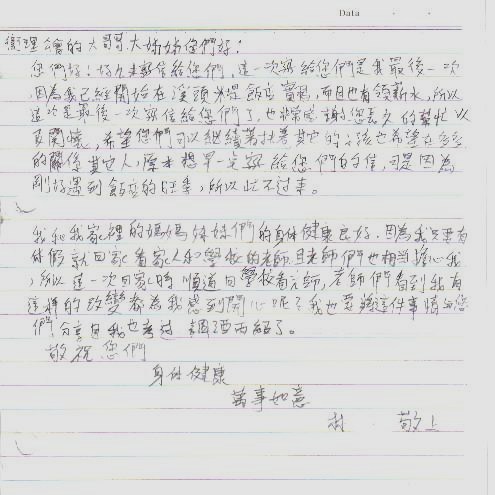 Data
衛理會的大哥哥.大姊姊您們好:
您們好!好久未寫信給您們,這一次寫給您們是我最後一次
因為我已經開始在溪頭米堤飯店實習,而且也有領薪水,所以
這次是最後一次寫信給您們了,也非常感謝您長久的幫忙以
及關懷,希望您們可以繼續著扶著其它的小孩也希望在多多
的關係其它人,原本想早一點寫給您們的信,可是因為
剛好遇到飯店的旺季,所以忙不過來。
我和我家裡的媽媽妹妹們的身体健康良好,因為我只要有
休假就回家看家人和學校的老師.且老師們也相當擔心我
,所以這一次回家時順道回學校看老師,老師們看到我有
這樣的改變都為我感到開心呢?我也要將這件事情與您
們分享且我也考過調酒丙級了。
敬祝您們
身体健康
萬事如意
敬上